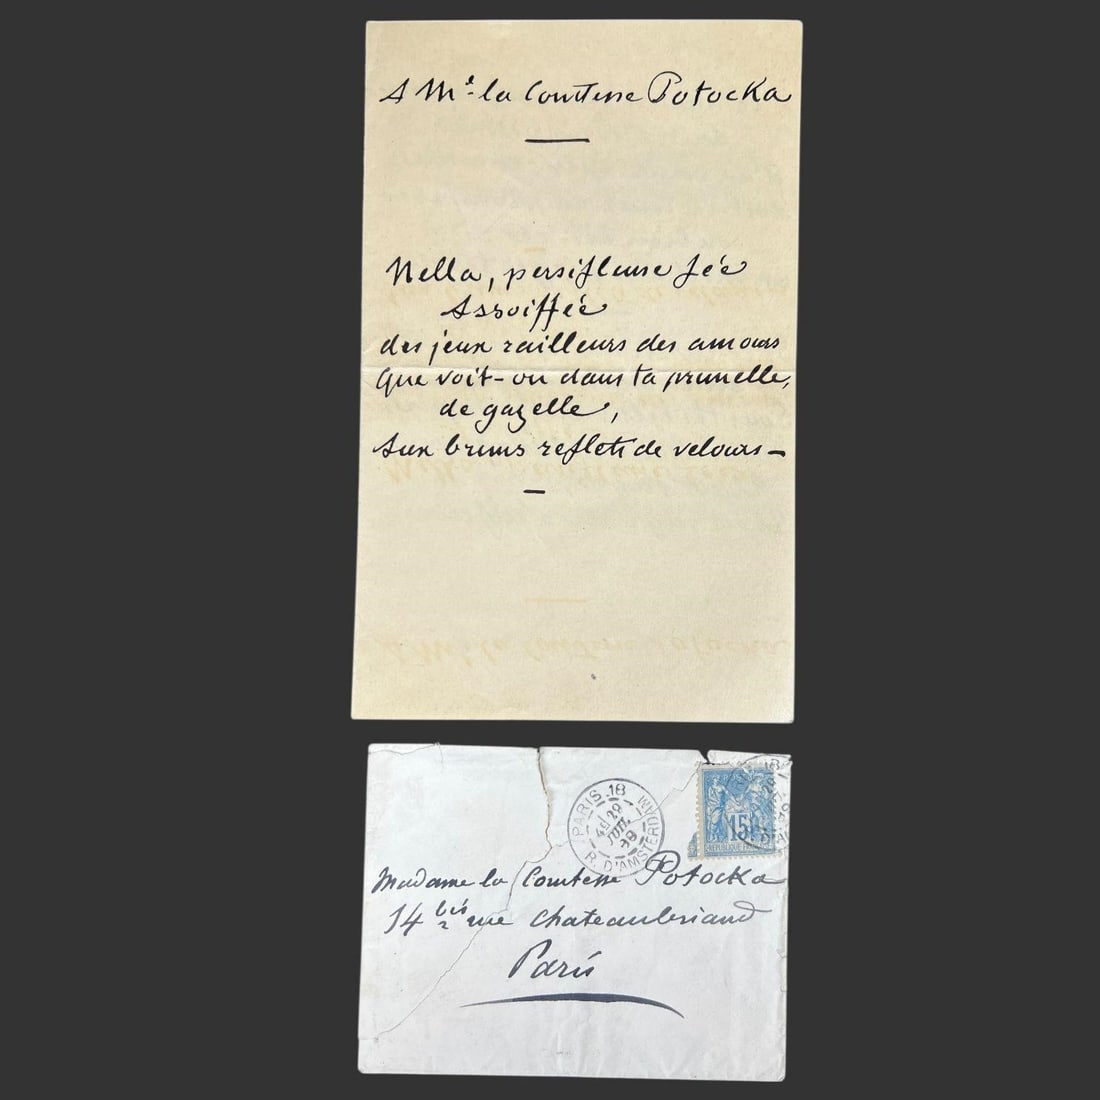 A Me. la Comtesse Potocka
Nella, persifleuse fée
Assoiffée
des jeux railleurs des amours
Que voit-on dans ta prunelle,
de gazelle,
Aux bruns reflets de velours -
PARIS. 18
R. D'AMSTERDAM
4E 29
JUIL
89
15
REPUBLIQUE FRANÇAISE
Madame la Comtesse Potocka
14 bis rue Chateaubriand
Paris